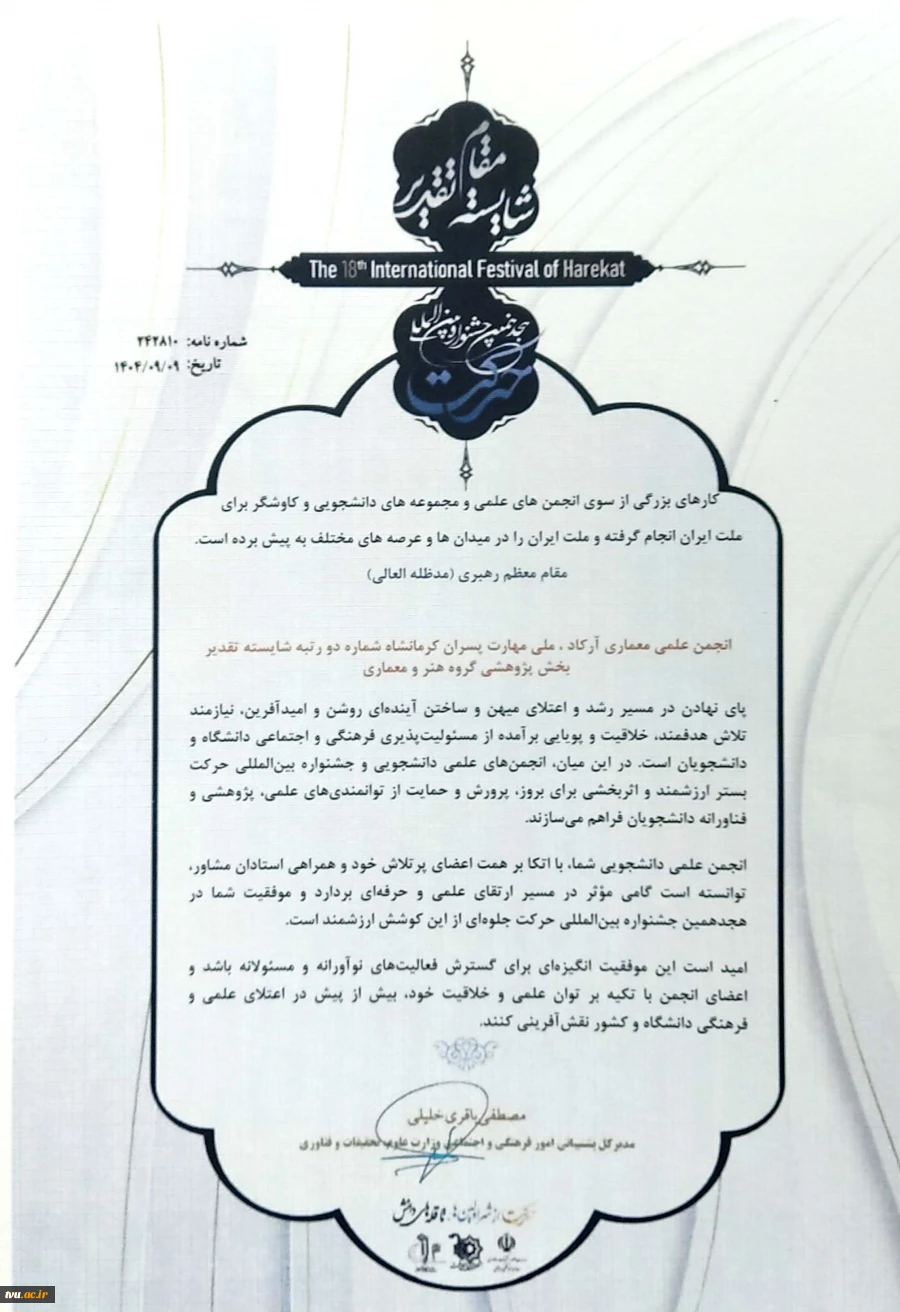 مقام شایسته تقدیر
The 18th International Festival of Harekat
هجدهمین جشنواره بین‌المللی
حرکت
شماره نامه: ۲۴۲۸۱۰
تاریخ: ۱۴۰۴/۰۹/۰۹
کارهای بزرگی از سوی انجمن های علمی و مجموعه های دانشجویی و کاوشگر برای
ملت ایران انجام گرفته و ملت ایران را در میدان ها و عرصه های مختلف به پیش برده است.
مقام معظم رهبری (مدظله العالی)
انجمن علمی معماری آرکاد ، ملی مهارت پسران کرمانشاه شماره دو رتبه شایسته تقدیر
بخش پژوهشی گروه هنر و معماری
پای نهادن در مسیر رشد و اعتلای میهن و ساختن آینده‌ای روشن و امیدآفرین، نیازمند
تلاش هدفمند، خلاقیت و پویایی برآمده از مسئولیت‌پذیری فرهنگی و اجتماعی دانشگاه و
دانشجویان است. در این میان، انجمن‌های علمی دانشجویی و جشنواره بین‌المللی حرکت
بستر ارزشمند و اثربخشی برای بروز، پرورش و حمایت از توانمندی‌های علمی، پژوهشی و
فناورانه دانشجویان فراهم می‌سازند.
انجمن علمی دانشجویی شما، با اتکا بر همت اعضای پرتلاش خود و همراهی استادان مشاور،
توانسته است گامی مؤثر در مسیر ارتقای علمی و حرفه‌ای بردارد و موفقیت شما در
هجدهمین جشنواره بین‌المللی حرکت جلوه‌ای از این کوشش ارزشمند است.
امید است این موفقیت انگیزه‌ای برای گسترش فعالیت‌های نوآورانه و مسئولانه باشد و
اعضای انجمن با تکیه بر توان علمی و خلاقیت خود، بیش از پیش در اعتلای علمی و
فرهنگی دانشگاه و کشور نقش‌آفرینی کنند.
مصطفی باقری خلیلی
مدیرکل پشتیبانی امور فرهنگی و اجتماعی وزارت علوم، تحقیقات و فناوری
حرکت از شهر اولین‌ها، تا قله‌های دانش
tvu.ac.ir